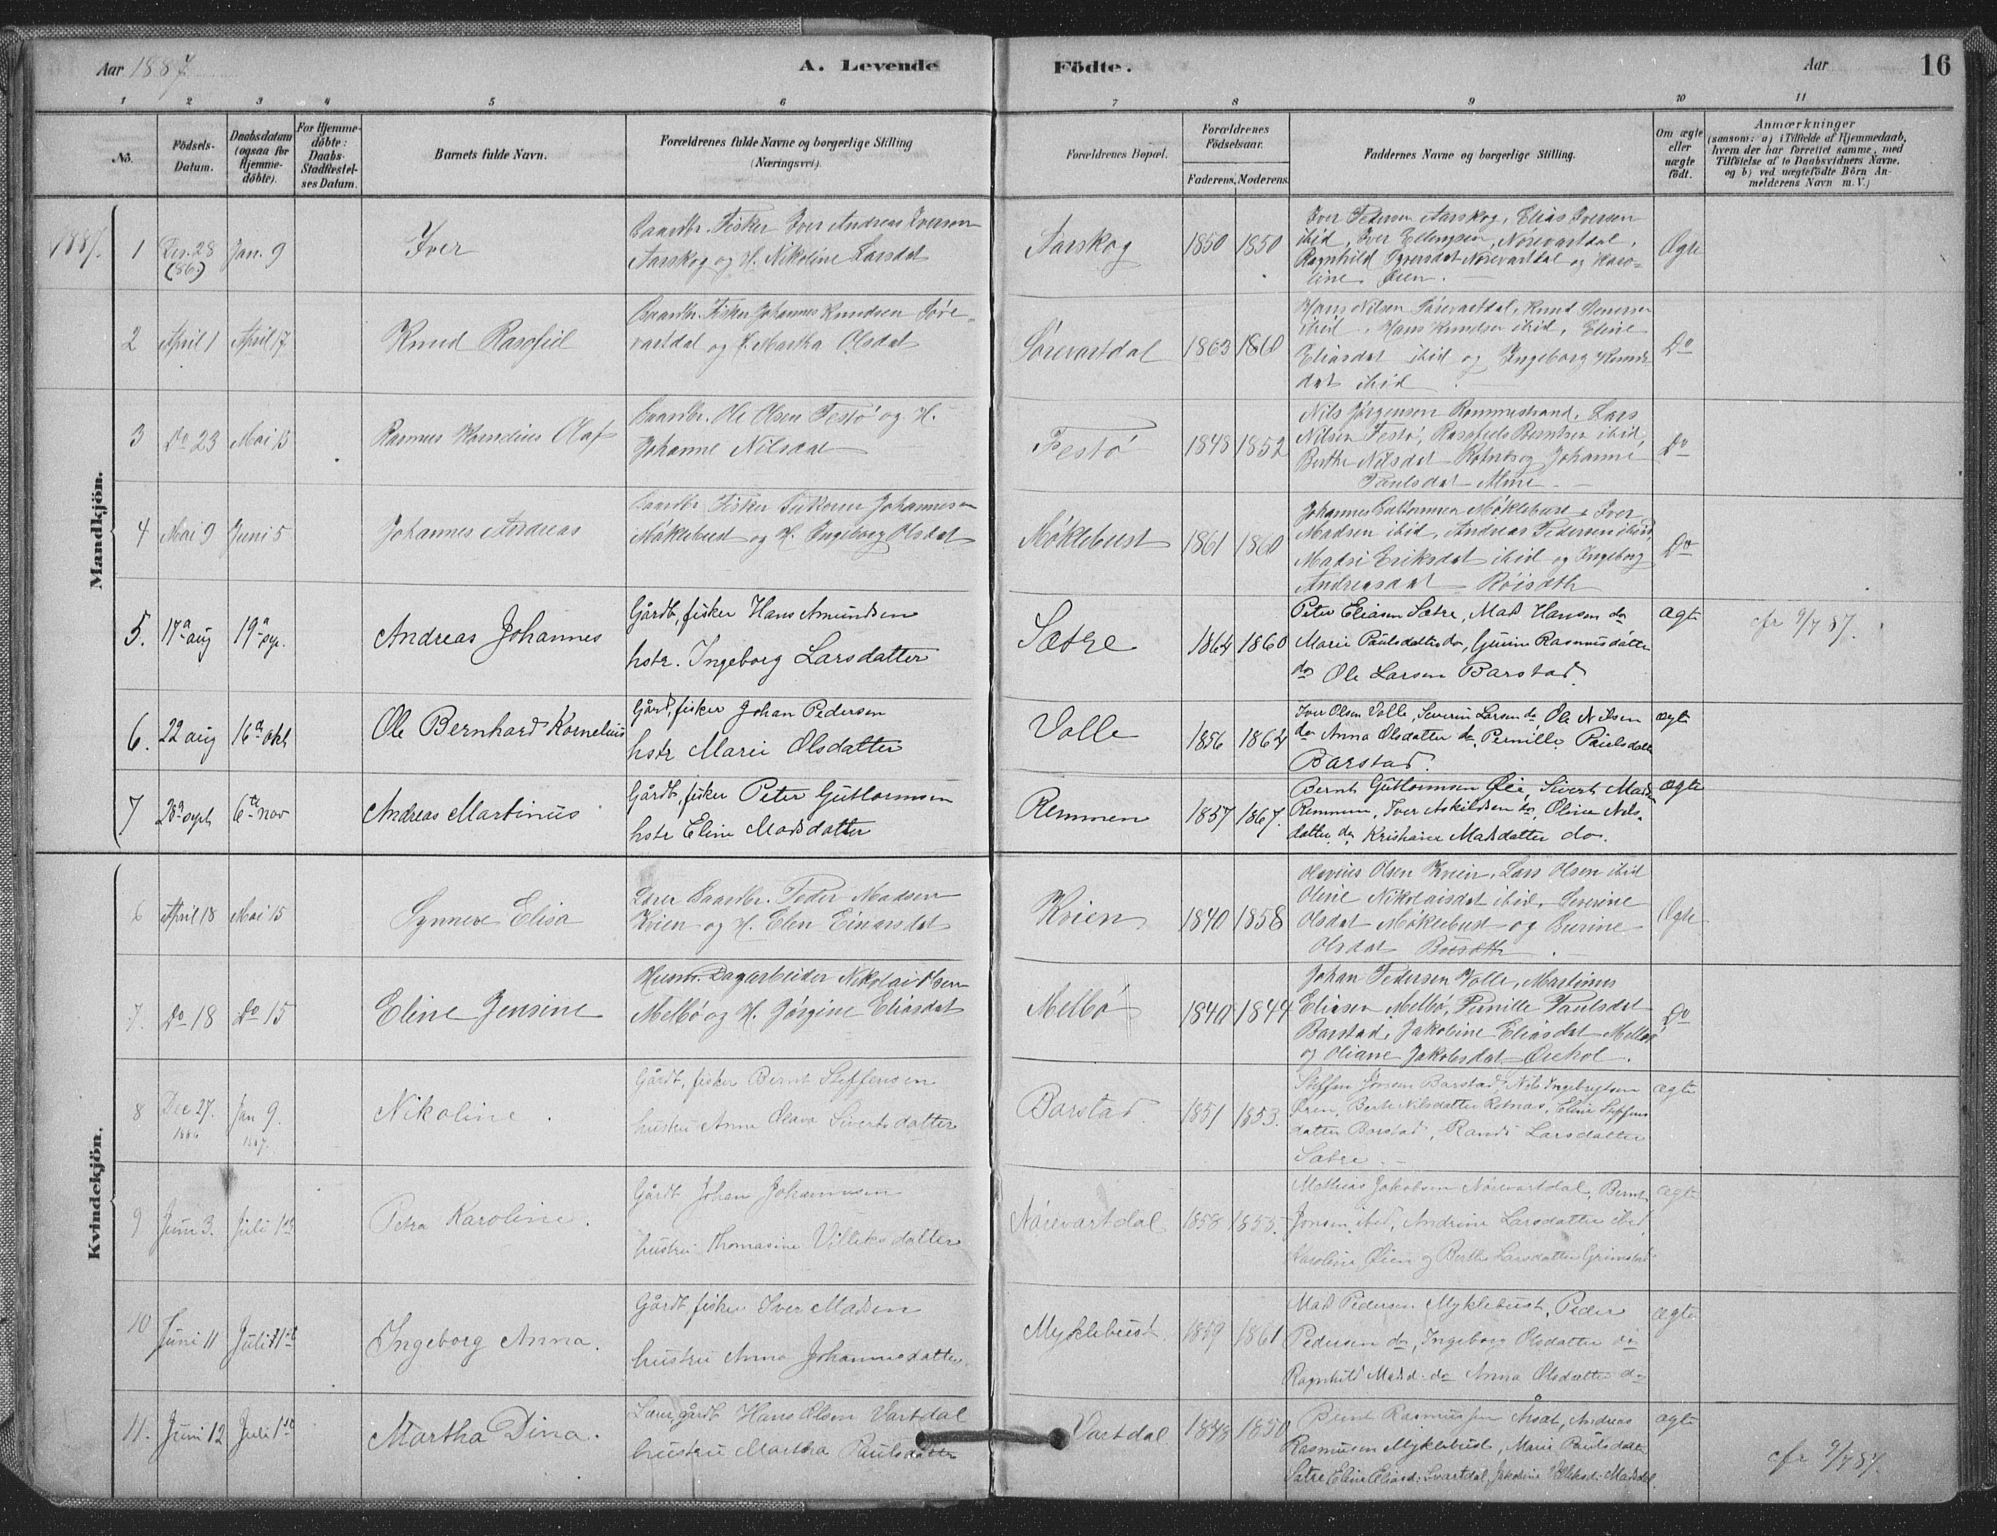 Aar 1887 A. Levende Födte. Aar 16
1 2 3 4 5 6 7 8 9 10 11
No. Födsels-Datum. Daabsdatum (ogsaa for Hjemme-döbte). For Hjemme-döbte: Daabs-Stadfæstel-ses Datum. Barnets fulde Navn. Forældrenes fulde Navne og borgerlige Stilling (Næringsvei). Forældrenes Bopæl. Forældrenes Födselsaar. Faderens. Moderens. Faddernes Navne og borgerlige Stilling. Om ægte eller uægte födt. Anmærkninger
(sansom: a) i Tilfælde af Hjemmedaab, hvem der har forrettet samme, med Tilföielse af to Daabsvidners Navne, og b) ved uægtefödte Börn An-melderens Navn m. V.)
Mandkjön.
1887. 1 Dec. 28 (86) Jan. 9 Iver
Gaardbr. Fisker Iver Andreas Iversen
Aarskog og H. Nikoline Larsdat
Aarskog 1850 1850
Iver Pedersen Aarskog, Elias Iversen
ibid, Iver Ellingsen, Nørevartdal,
Ragnhild Nørevartdal og Karo-
line Øien.
Ægte
2 April 1 April 17 Knud Rasofiel
Gaardbr. Fisker Johannes Knudsen Søre-
vartdal og H. Martha Olsdat
Sørevartdal 1863 1860
Hans Nilsen Sørevartdal, Knud
ibid, Hans Knudsen ibid, Eline
Eliasdat ibid og Ingeborg Knuds-
dat ibid
Do
3 Do 23 Mai 15 Rasmus Kornelius Olaf
Gaardbr. Ole Olsen Festø og H.
Johanne Nilsdat
Festø 1848 1852
Nils Jørgensen Rommestrand, Lars
Nilsen Festø, Berntsen ibid,
Berthe Nilsdat og Johanne
Paulsdat Alme
Do
4 Mai 9 Juni 5 Johannes Andreas
Gaardbr. Fisker Johannesen
Møklebust og H. Ingeborg Olsdat
Møklebust 1861 1860
Johannes Guttormsen Møklebust, Iver
Madsen ibid, Andreas Pedersen ibid,
Madsi Eriksdat ibid og Ingeborg
Andreasdat
Do
5. 17de aug 19de sep. Andreas Johannes
Gårdb, fisker Hans Amundsen
hstr. Ingeborg Larsdatter
Sætre 1864 1860
Peter Eliasen Sætre, Mads Hansen do
Marie Paulsdatter do, Gurine Rasmusdatter
do Ole Larsen Barstad.
ægte cfr 9/7 87.
6. 22 aug 16de okt Ole Bernhard Kornelius
Gård, fisker Johan Pedersen
hstr Marie Olsdatter
Volle 1856 1864
Iver Olsen Volle, Severin Larsen do Ole Nilsen
do Anna Olsdatter do, Pernille Paulsdatter
Barstad.
ægte
7 26 sept 6te nov Andreas Martinus
Gårdb, fisker Peter Guttormsen
hstr Eline Madsdatter
Remmen 1857 1867.
Bernt Guttormsen Øie, Sivert Mads
Remmen, Iver Askildsen do, Oline Nils-
datter do, Kristiane Madsdatter do.
ægte
Kvindekjön.
6 April 18 Mai 15 Synneve Elisa
Lærer Gaardbr. Peder Madsen
Kvien og H. Elen Einarsdat
Kvien 1840 1858
Olsen Kvien, Lars Olsen ibid
Oline Nikolaisdat ibid, Severine
Olsdat Møklebust og Gurine
Olsdat
Ægte
7. Do 18 Do 15 Eline Jensine
Husm. Dagarbeider Nikolai Olsen
Melbø og H. Jørgine Eliasdat
Melbø 1840 1844
Johan Pedersen Volle, Martinus
Eliasen Melbø, Pernille Paulsdat
Barstad, Jakobine Eliasdat Melbø
og Oliane Jakobsdat
Do
8 Dec 27. 1886 Jan 9. 1887. Nikoline.
Gårdb, fisker Bernt Steffensen
hustru Anne Olava Sivertsdatter
Barstad 1851 1853.
Steffen Jonsen Barstad, Nils Ingebrigtsen
Øren, Berte Nilsdatter Rotnæs, Eline Steffens
datter Barstad, Randi Larsdatter
Sætre
ægte
9 Juni 3. Juli 1ste Petra Karoline.
Gårdb Johan Johannesen
hustru Thomasine Villiksdatter
Nørevartdal 1858 1855.
Mathias Jakobsen Nørevartdal, Bernt
Jonsen ibid, Andrine Larsdatter ibid
Karoline Øien og Berthe Larsdatter
ægte
10 Juni 11 Juli 1ste Ingeborg Anna.
Gårdb, fisker Iver Madsen
hustru Anna Johannesdatter.
Myklebust. 1859 1861
Mads Pedersen Myklebust, Peder
Pedersen do, Ingeborg Olsdatter do
Ragnhild Madsd. do Anna Olsdatter do
ægte
11. Juni 12 Juli 1ste Martha Dina.
gårdb Hans Olsen Vartdal
hustru Martha Paulsdatter
Vartdal 1848 1850
Bernt Rasmussen Åsæt, Andreas
Rasmusen Myklebust, Marie Paulsdatter
Sætre, Eline Eliasd: Svartdal, Jakobine
ægte cfr 9/7 87.